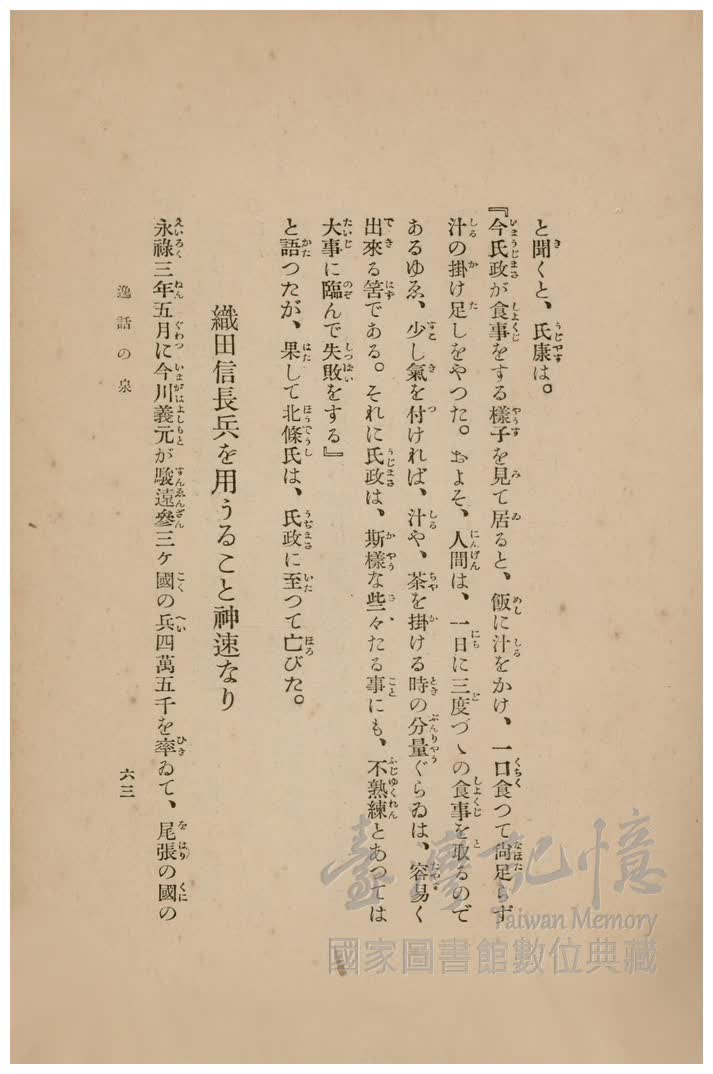 と聞くと、氏康は。
『今氏政が食事をする樣子を見て居ると、飯に汁をかけ、一口食つて尙足らず
汁の掛け足しをやつた。およそ、人間は、一日に三度づゝの食事を取るので
あるゆゑ、少し氣を付ければ、汁や、茶を掛ける時の分量ぐらゐは、容易く
出來る筈である。それに氏政は、斯樣な些々たる事にも、不熟練とあつては
大事に臨んで失敗をする』
と語つたが、果して北條氏は、氏政に至つて亡びた。
織田信長兵を用うること神速なり
永祿三年五月に今川義元が駿遠參三ケ國の兵四萬五千を率ゐて、尾張の國の
逸話の泉
六三
臺灣記憶
Taiwan Memory
國家圖書館數位典藏